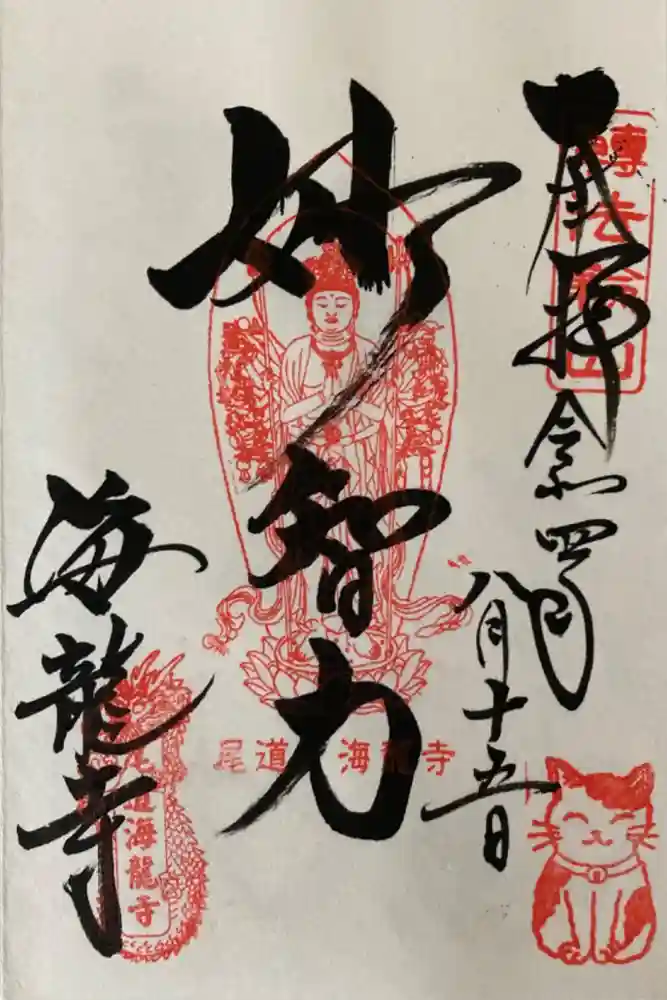 奉拝
令和四年
八月十五日
轉法輪山
妙智力
尾道 海龍寺
海龍寺
尾道海龍寺